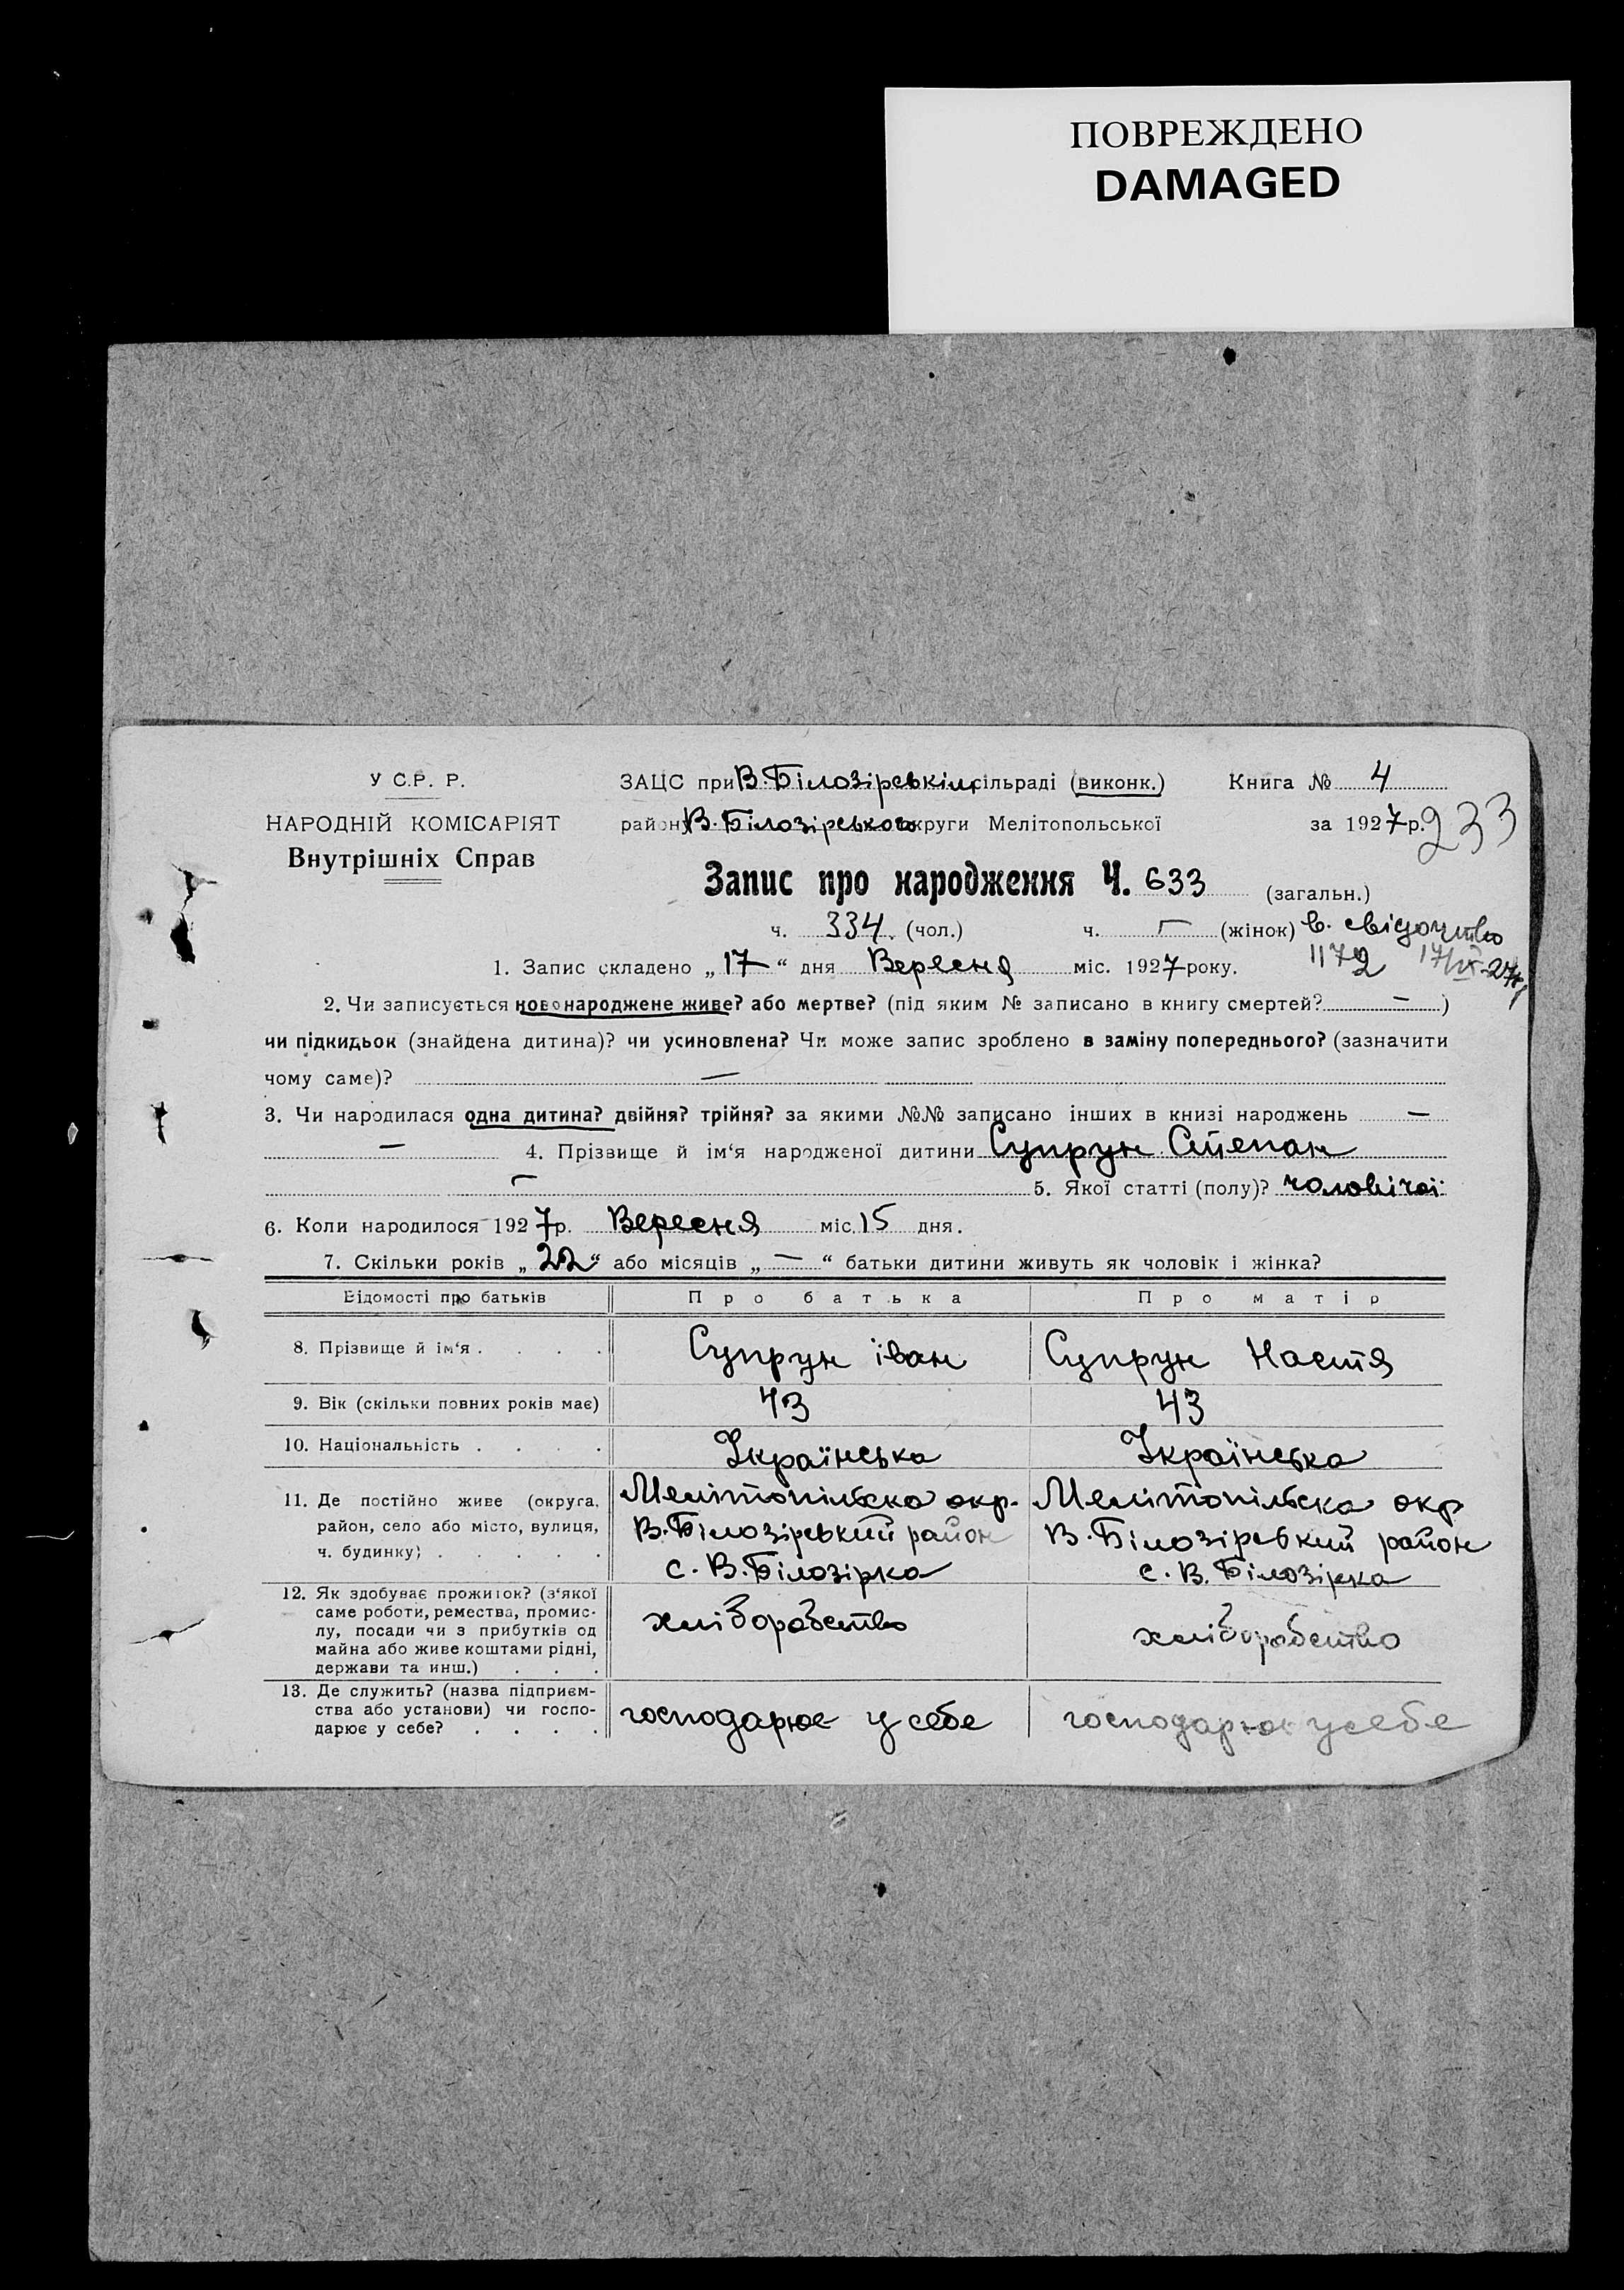 ПОВРЕЖДЕНО
DAMAGED
У С.Р. Р.
НАРОДНІЙ КОМІСАРІЯТ
Внутрішніх Справ
ЗАЦС при В. Білозірськім сільраді (виконк.) Книга № 4
району В. Білозірського округи Мелітопольської за 1927 р. 233
Запис про народження Ч. 633 (загальн.)
ч. 334 (чол.) ч. — (жінок) в. свідоцтво
1. Запис складено „17“ дня Вересня міс. 1927 року. 1172 17/IX-27р
2. Чи записується новонароджене живе? або мертве? (під яким № записано в книгу смертей? — )
чи підкидьок (знайдена дитина)? чи усиновлена? Чи може запис зроблено в заміну попереднього? (зазначити
чому саме)? —
3. Чи народилася одна дитина? двійня? трійня? за якими №№ записано інших в книзі народжень —
— 4. Прізвище й ім‘я народженої дитини Супрун Степан
— 5. Якої статті (полу)? чоловічої
6. Коли народилося 1927 р. Вересня міс. 15 дня.
7. Скільки років „22“ або місяців „—“ батьки дитини живуть як чоловік і жінка?
Відомості про батьків Про батька Про матір
8. Прізвище й ім‘я . . . . Супрун іван Супрун Настя
9. Вік (скільки повних років має) 43 43
10. Національність . . . . Українська Українська
11. Де постійно живе (округа, Мелітопільска окр. Мелітопільска окр
район, село або місто, вулиця, В. Білозірський район В. Білозірський район
ч. будинку) . . . . . с. В. Білозірка с. В. Білозірка
12. Як здобуває прожиток? (з‘якої
саме роботи, ремества, промис- хліборобство хліборобство
лу, посади чи з прибутків од
майна або живе коштами рідні,
держави та инш.) . . .
13. Де служить? (назва підприєм-
ства або установи) чи госпо- господарює у себе господарює у себе
дарює у себе? . . . .